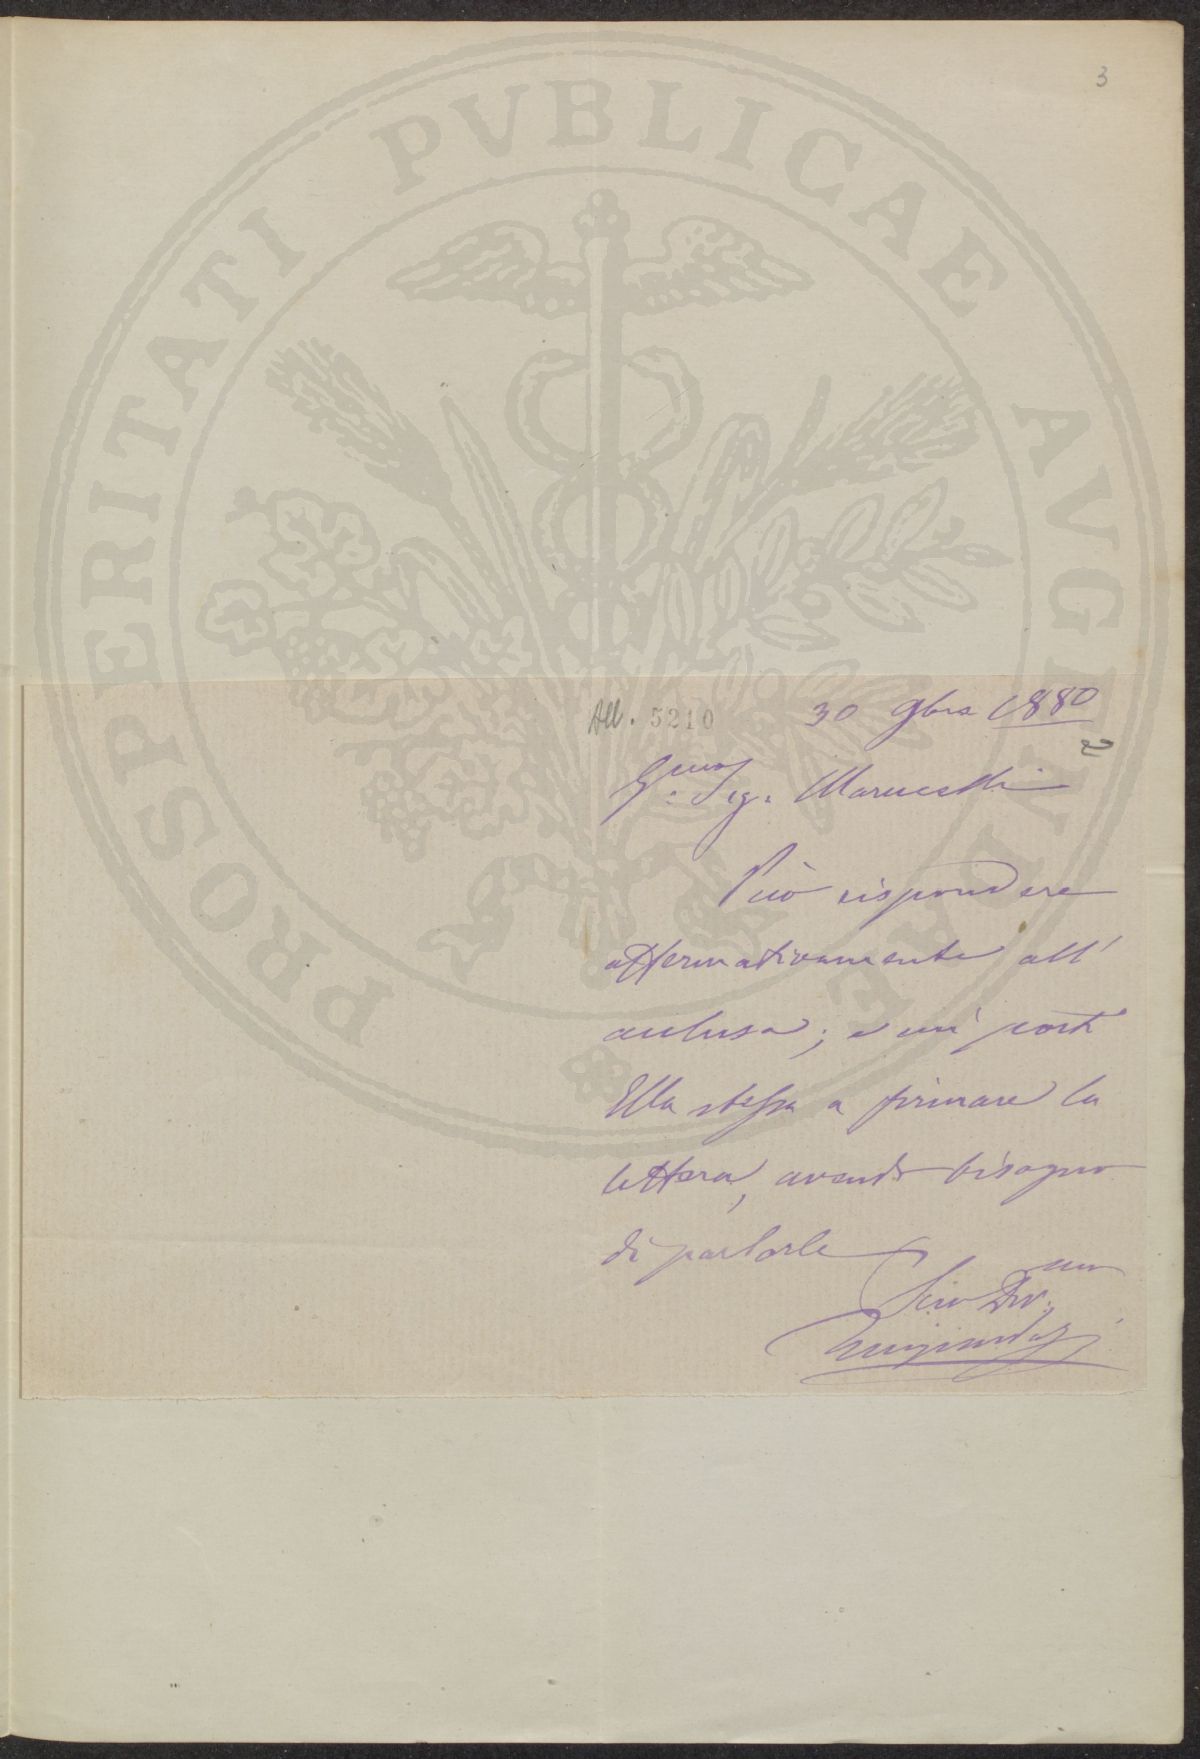 3
PROSPERITATI PVBLICAE AVGENDAE
All. 5210
30 9bre 1880
2
G.mo Sig. Marucelli
Può rispondere
affermativamente all'
acclusa; e mi porti
Ella stessa a firmare la
lettera, avendo bisogno
di parlarle
Suo Dev.mo